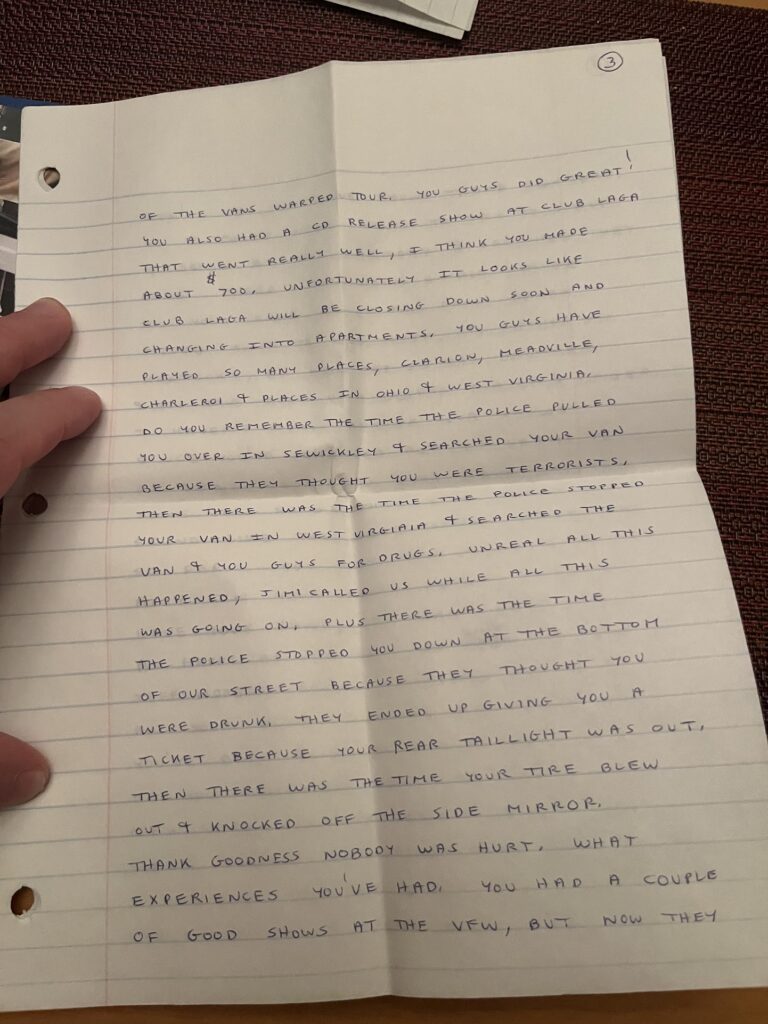 3
OF THE VANS WARPED TOUR. YOU GUYS DID GREAT!
YOU ALSO HAD A CD RELEASE SHOW AT CLUB LAGA
THAT WENT REALLY WELL, I THINK YOU MADE
ABOUT $700. UNFORTUNATELY IT LOOKS LIKE
CLUB LAGA WILL BE CLOSING DOWN SOON AND
CHANGING INTO APARTMENTS. YOU GUYS HAVE
PLAYED SO MANY PLACES, CLARION, MEADVILLE,
CHARLEROI & PLACES IN OHIO & WEST VIRGINIA.
DO YOU REMEMBER THE TIME THE POLICE PULLED
YOU OVER IN SEWICKLEY & SEARCHED YOUR VAN
BECAUSE THEY THOUGHT YOU WERE TERRORISTS.
THEN THERE WAS THE TIME THE POLICE STOPPED
YOUR VAN IN WEST VIRGIAIA & SEARCHED THE
VAN & YOU GUYS FOR DRUGS. UNREAL ALL THIS
HAPPENED, JIMI CALLED US WHILE ALL THIS
WAS GOING ON. PLUS THERE WAS THE TIME
THE POLICE STOPPED YOU DOWN AT THE BOTTOM
OF OUR STREET BECAUSE THEY THOUGHT YOU
WERE DRUNK. THEY ENDED UP GIVING YOU A
TICKET BECAUSE YOUR REAR TAILLIGHT WAS OUT.
THEN THERE WAS THE TIME YOUR TIRE BLEW
OUT & KNOCKED OFF THE SIDE MIRROR.
THANK GOODNESS NOBODY WAS HURT. WHAT
EXPERIENCES YOU'VE HAD. YOU HAD A COUPLE
OF GOOD SHOWS AT THE VFW, BUT NOW THEY